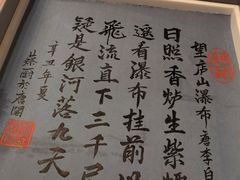 望庐山瀑布唐李白
日照香炉生紫烟
遥看瀑布挂前川
飛流直下三千尺
疑是銀河落九天
辛丑年夏